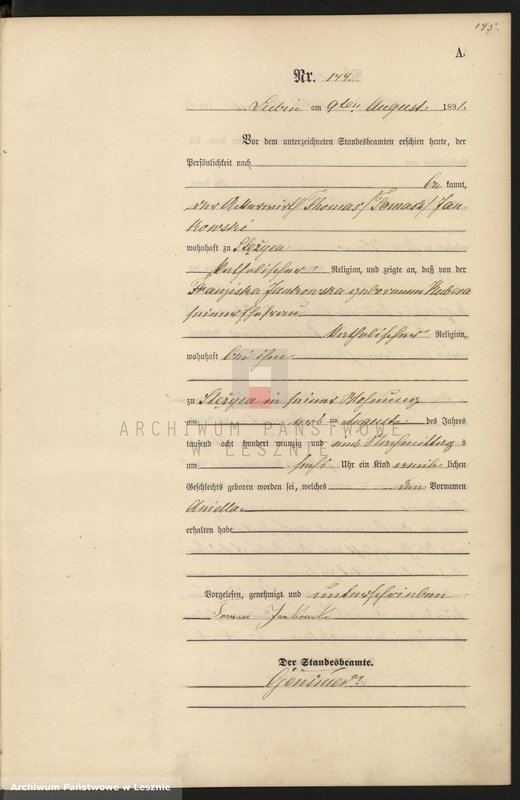 175.
A.
Nr. 144.
Lubin am 9ten August 1891.
Vor dem unterzeichneten Standesbeamten erschien heute, der
Persönlichkeit nach
be kannt,
der Ackerwirth Thomas /Tomasz/ Jan-
kowski
wohnhaft zu Stężyca
katholischer Religion, und zeigte an, daß von der
Franziska Jankowska geborenen
seiner Ehefrau
katholischer Religion,
wohnhaft bei ihm
zu Stężyca in seiner Wohnung
am ten August des Jahres
tausend acht hundert neunzig und eins Nachmittag s
um sechs Uhr ein Kind weib lichen
Geschlechts geboren worden sei, welches den Vornamen
Aniella
erhalten habe
Vorgelesen, genehmigt und unterschrieben
Jankowski
Der Standesbeamte.
ARCHIWUM PAŃSTWOWE
W LESZNIE
Archiwum Państwowe w Lesznie